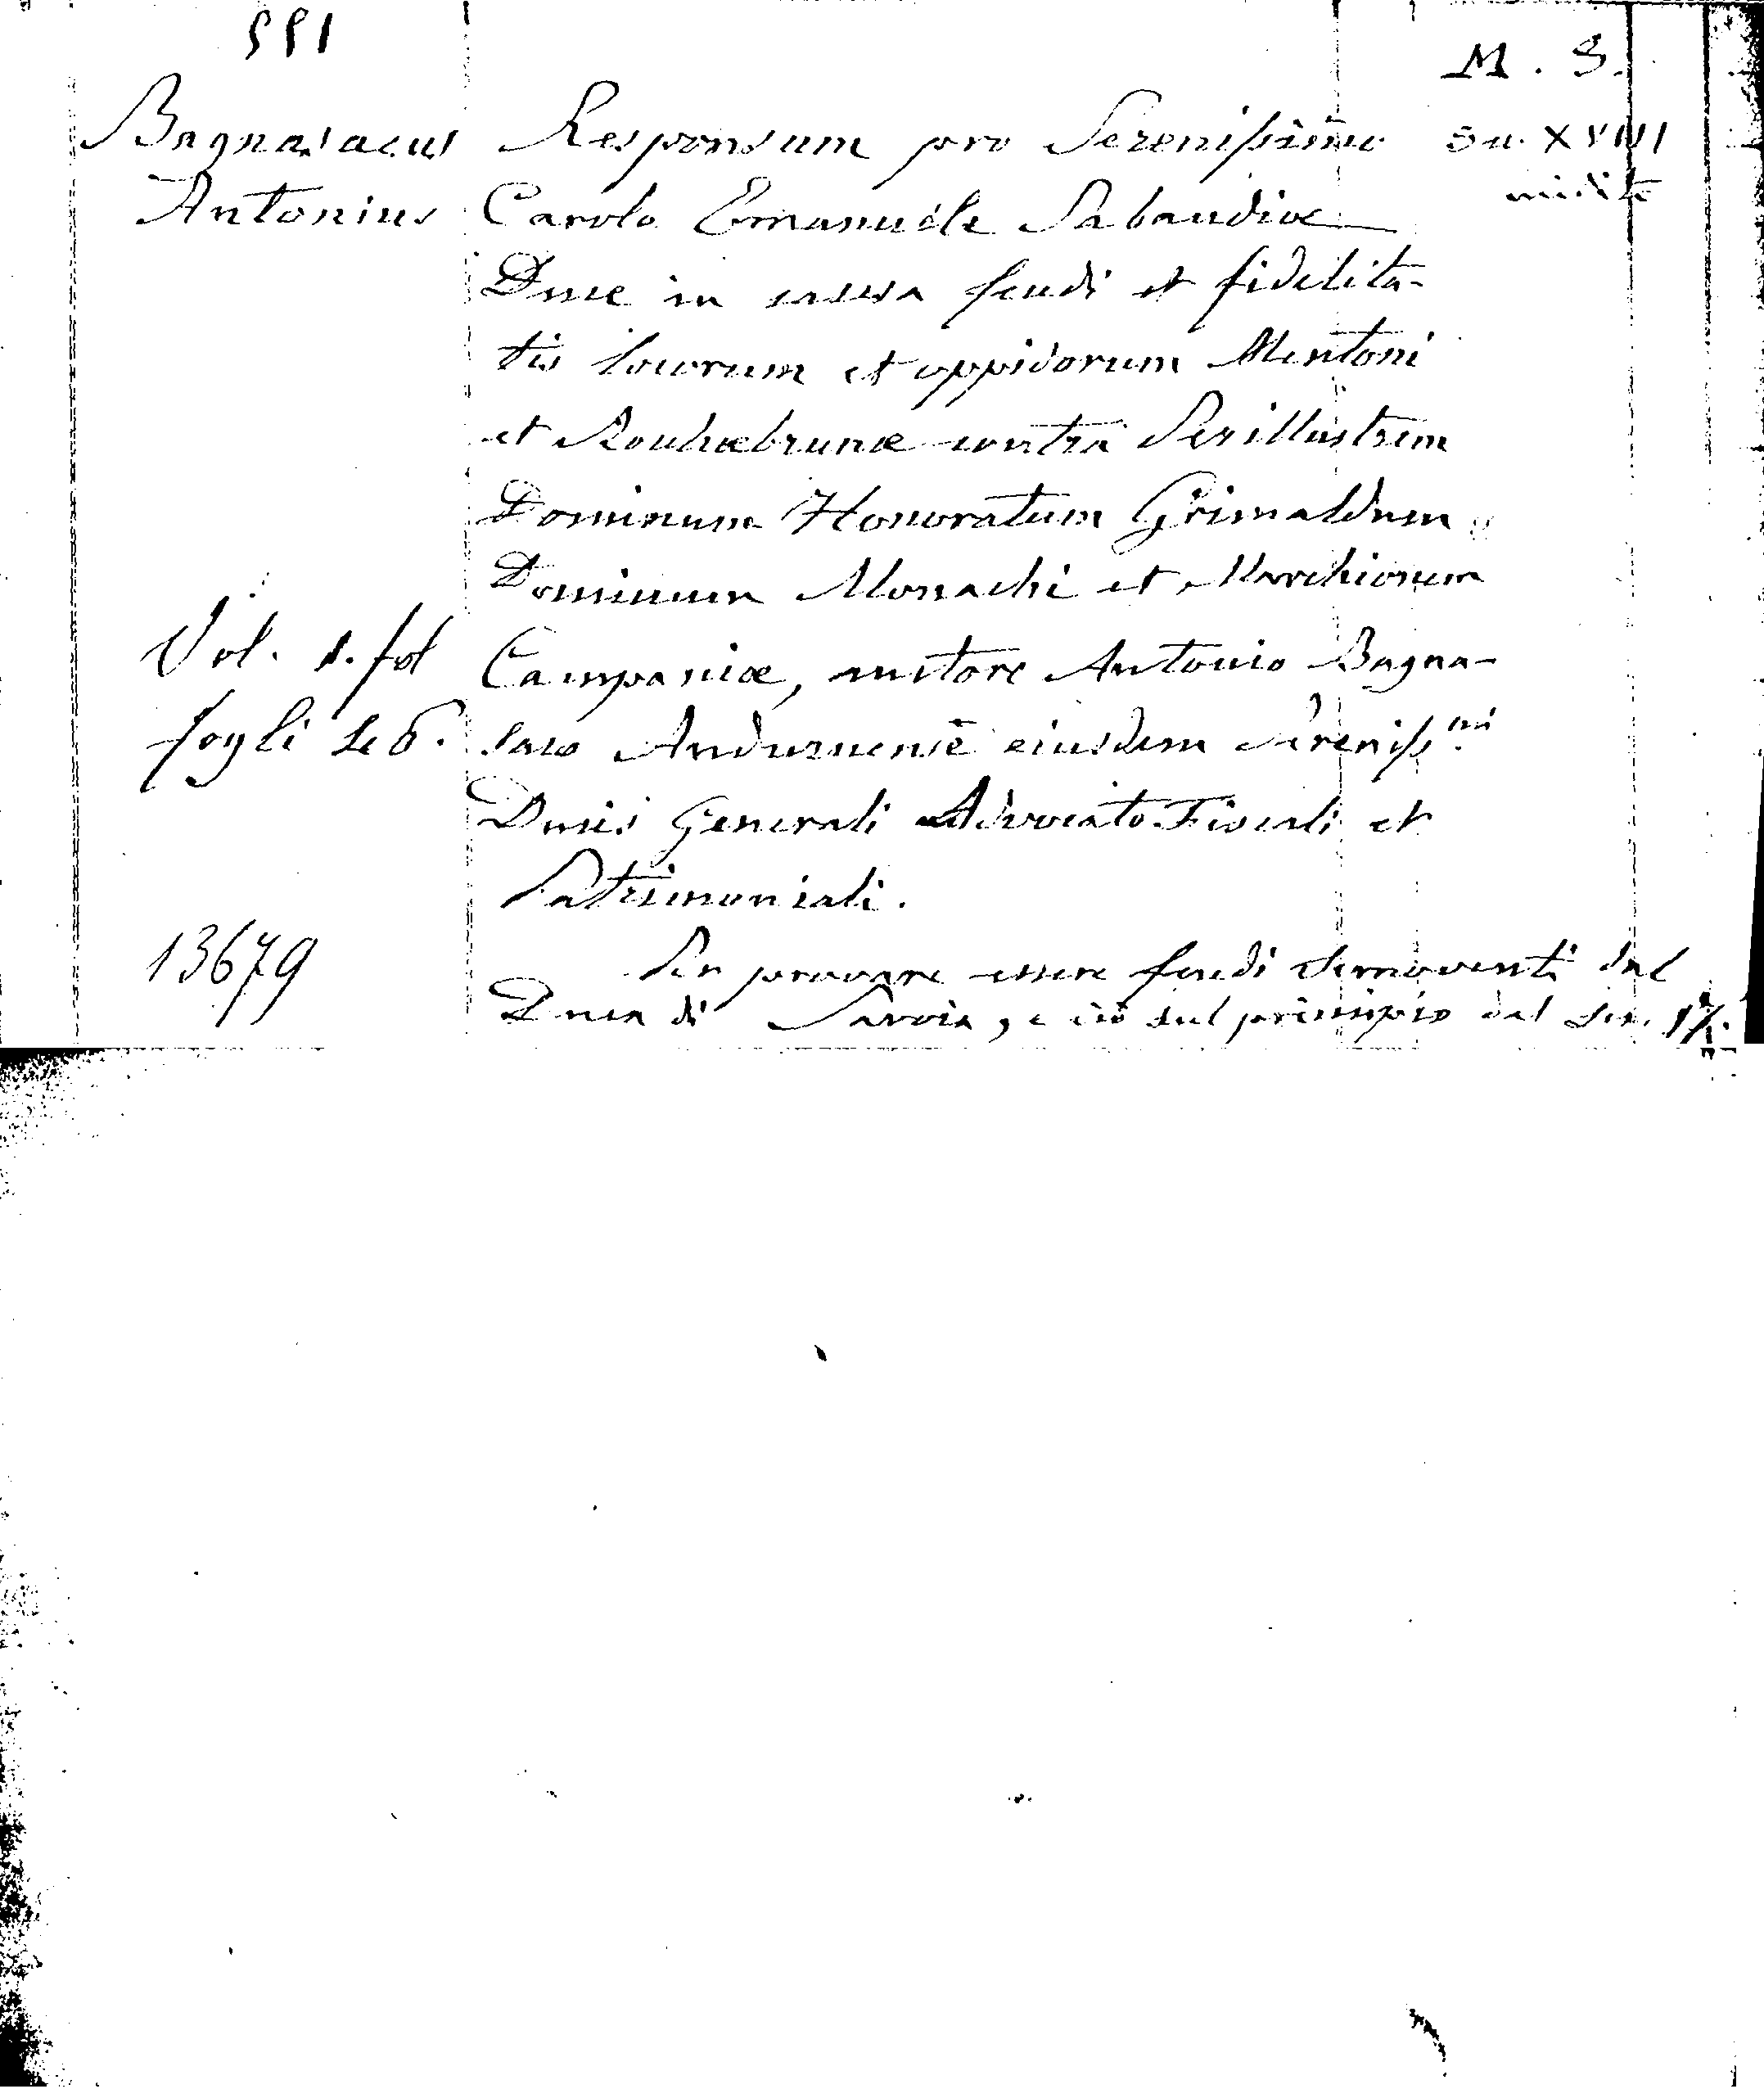 551
M. S.
Bagnasacus
Antonius
Responsum pro Serenissimo
Carolo Emanuele Sabaudiæ
Duce in causa feudi et fidelita-
tis locorum et oppidorum Mentoni
et Rouhæbrunæ contra Perillustrem
Dominum Honoratum Grimaldum
Dominum Monachi et Marchionem
Campaniæ, auctore Antonio Bagna-
saco Andurnense eiusdem Sereniss.mi
Ducis Generali Advocato Fiscali et
Patrimoniali.
Sec. XVIII
Vol. 1. fol
fogli
13679
Per provare essere feudi semoventi dal
Duca di Savoia, e ciò sul principio del Sec. 17.